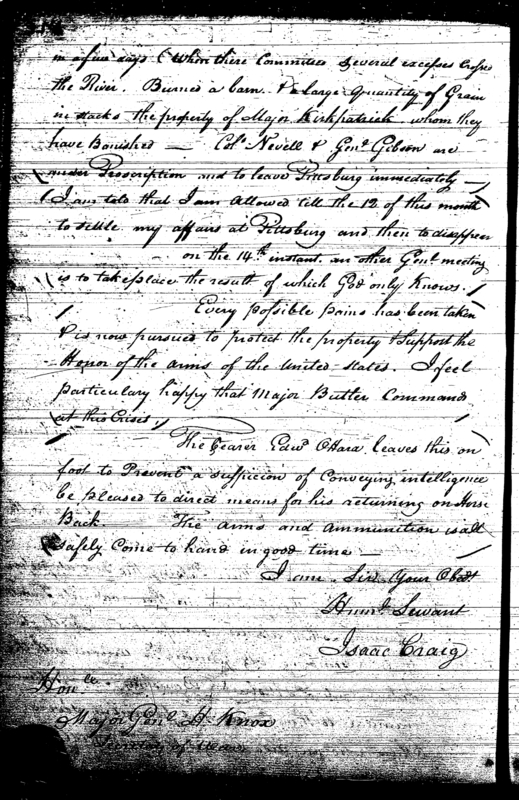 in a few days (whom there Committed several excesses Crossed
the River. Burned a barn. & a large Quantity of Grain
in stacks the property of Major Kirkpatrick whom they
have Banished — Col. Nevell & Genl. Gibson are
under Proscription and to leave Pittsburg immediately —
I am told that I am Allowed till the 12 of this month
to settle my affairs at Pittsburg and then to disappear
on the 14th instant. an other Genl. meeting
is to take place the result of which God only Knows.
Every possible pains has been taken
& is now pursued to protect the property & Support the
Honor of the arms of the United States. I feel
particulary happy that Major Butler Command
at this Crisis.
The bearer Edwd. OHara leaves this on
foot to Prevent a suspicion of Conveying intelligence
be pleased to direct means for his returning on Horse
Back. The arms and Ammunition is all
safely Come to hand in good time —
I am Sir Your Obedt
Humb. Servant
Isaac Craig
Honble.
Major Genl. H. Knox
Secretary of War